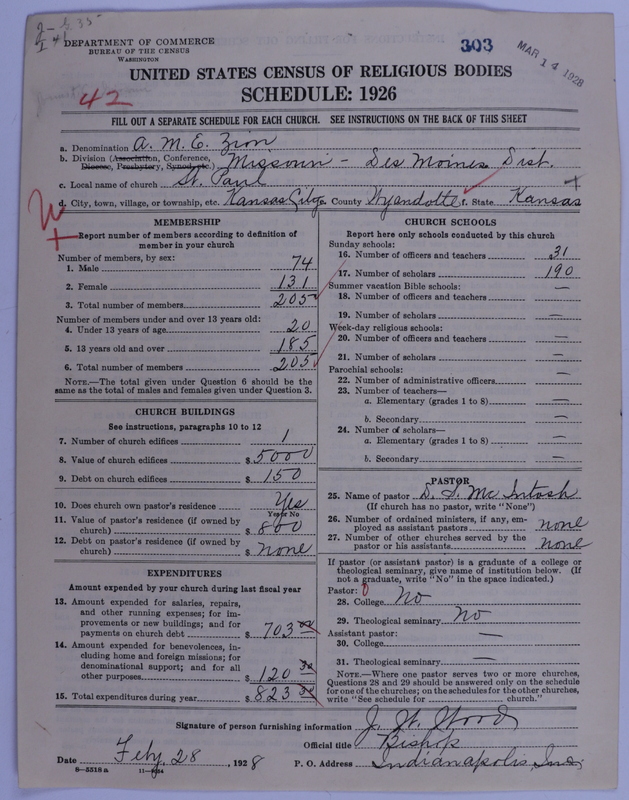 DEPARTMENT OF COMMERCE
BUREAU OF THE CENSUS
WASHINGTON
303
MAR 14 1928
42
UNITED STATES CENSUS OF RELIGIOUS BODIES
SCHEDULE: 1926
FILL OUT A SEPARATE SCHEDULE FOR EACH CHURCH. SEE INSTRUCTIONS ON THE BACK OF THIS SHEET
a. Denomination A. M. E. Zion
b. Division (Association, Conference, Diocese, Presbytery, Synod, etc.) Missouri - Des Moines Dist.
c. Local name of church St. Paul
d. City, town, village, or township, etc. Kansas City e. County Wyandotte f. State Kansas
MEMBERSHIP
Report number of members according to definition of
member in your church
Number of members, by sex:
1. Male 74
2. Female 131
3. Total number of members 205
Number of members under and over 13 years old:
4. Under 13 years of age 20
5. 13 years old and over 185
6. Total number of members 205
NOTE.—The total given under Question 6 should be the
same as the total of males and females given under Question 3.
CHURCH BUILDINGS
See instructions, paragraphs 10 to 12
7. Number of church edifices 1
8. Value of church edifices $ 5000
9. Debt on church edifices $ 150
10. Does church own pastor's residence Yes
Yes or No
11. Value of pastor's residence (if owned by
church) $ 800
12. Debt on pastor's residence (if owned by
church) $ none
EXPENDITURES
Amount expended by your church during last fiscal year
13. Amount expended for salaries, repairs,
and other running expenses; for im-
provements or new buildings; and for
payments on church debt $ 703 00
14. Amount expended for benevolences, in-
cluding home and foreign missions; for
denominational support; and for all
other purposes $ 120 30
15. Total expenditures during year $ 823 30
CHURCH SCHOOLS
Report here only schools conducted by this church
Sunday schools:
16. Number of officers and teachers 31
17. Number of scholars 190
Summer vacation Bible schools:
18. Number of officers and teachers —
19. Number of scholars —
Week-day religious schools:
20. Number of officers and teachers —
21. Number of scholars —
Parochial schools:
22. Number of administrative officers —
23. Number of teachers—
a. Elementary (grades 1 to 8) —
b. Secondary —
24. Number of scholars—
a. Elementary (grades 1 to 8) —
b. Secondary —
PASTOR
25. Name of pastor D. S. McIntosh
(If church has no pastor, write "None")
26. Number of ordained ministers, if any, em-
ployed as assistant pastors none
27. Number of other churches served by the
pastor or his assistants none
If pastor (or assistant pastor) is a graduate of a college or
theological seminary, give name of institution below. (If
not a graduate, write "No" in the space indicated.)
Pastor:
28. College No
29. Theological seminary No
Assistant pastor:
30. College —
31. Theological seminary —
NOTE.—Where one pastor serves two or more churches,
Questions 28 and 29 should be answered only on the schedule
for one of the churches; on the schedules for the other churches,
write "See schedule for church."
Signature of person furnishing information J. W. Wood
Official title Bishop
Date Feby. 28, 1928 P. O. Address Indianapolis, Ind.
8—5518 a